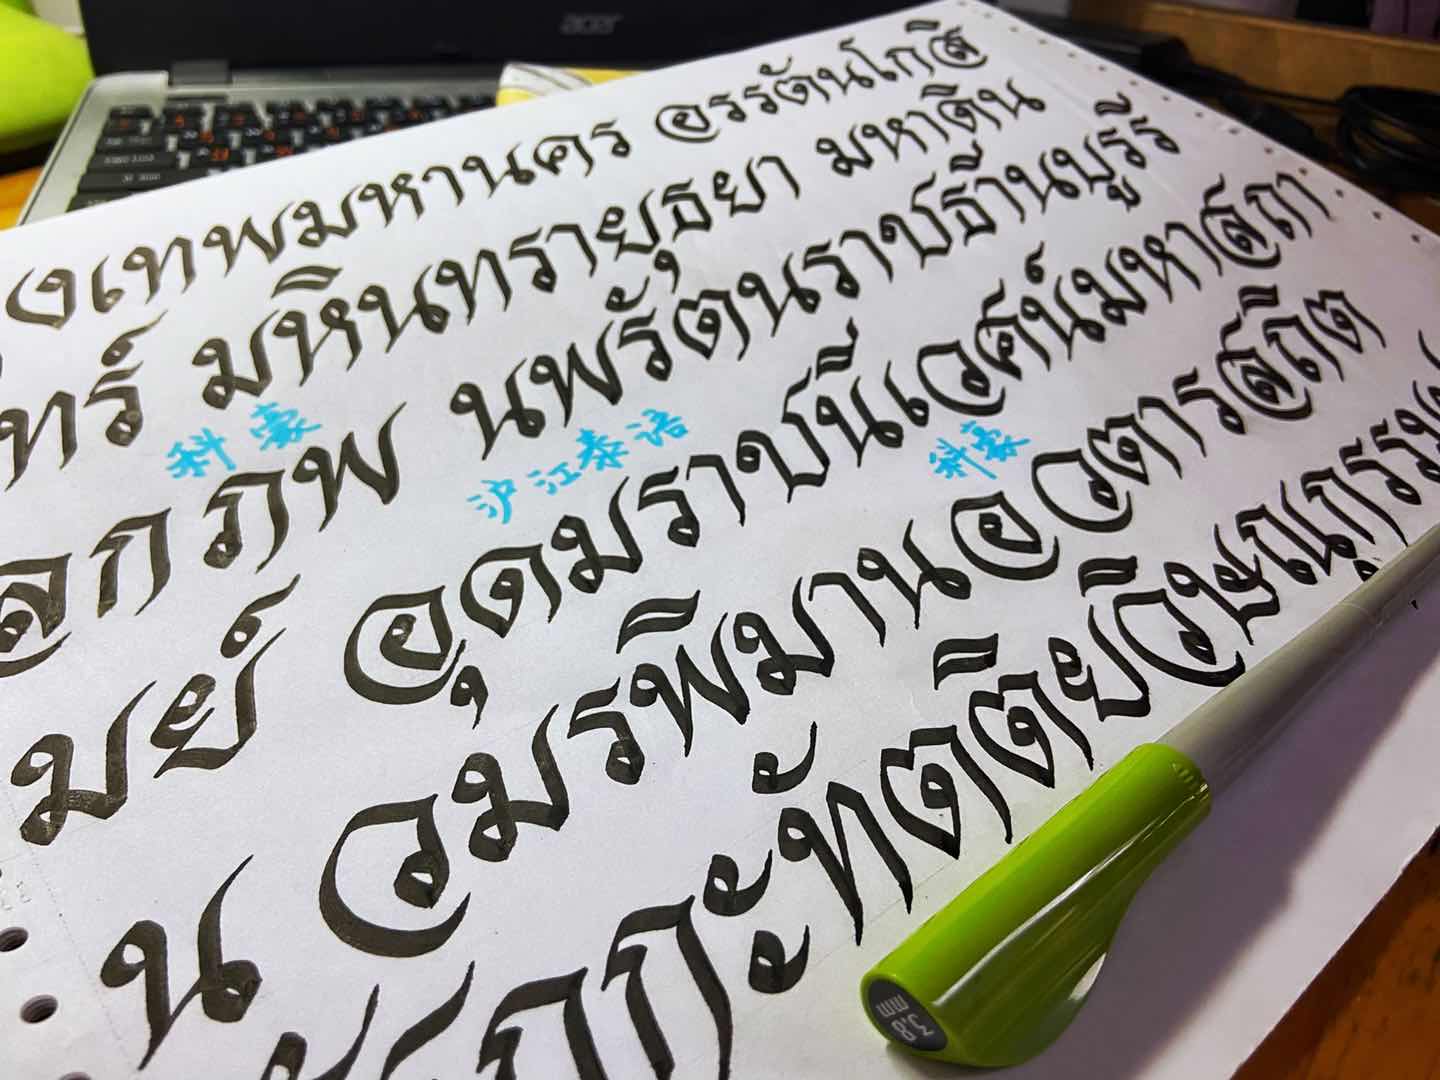 acer
งเทพมหานคร อรรัตนโกสิ
ทร์ มหินทรายุธยา มหาดิน
ลกภพ นพรัตนราชธานีบูรีร
科豪 沪江泰语 科豪
มย์ อุดมราชนิเวศน์มหาสถา
น อมรพิมานอวตารสถิต
กกะทัตติยวิษณุกรรม
3.8 mm